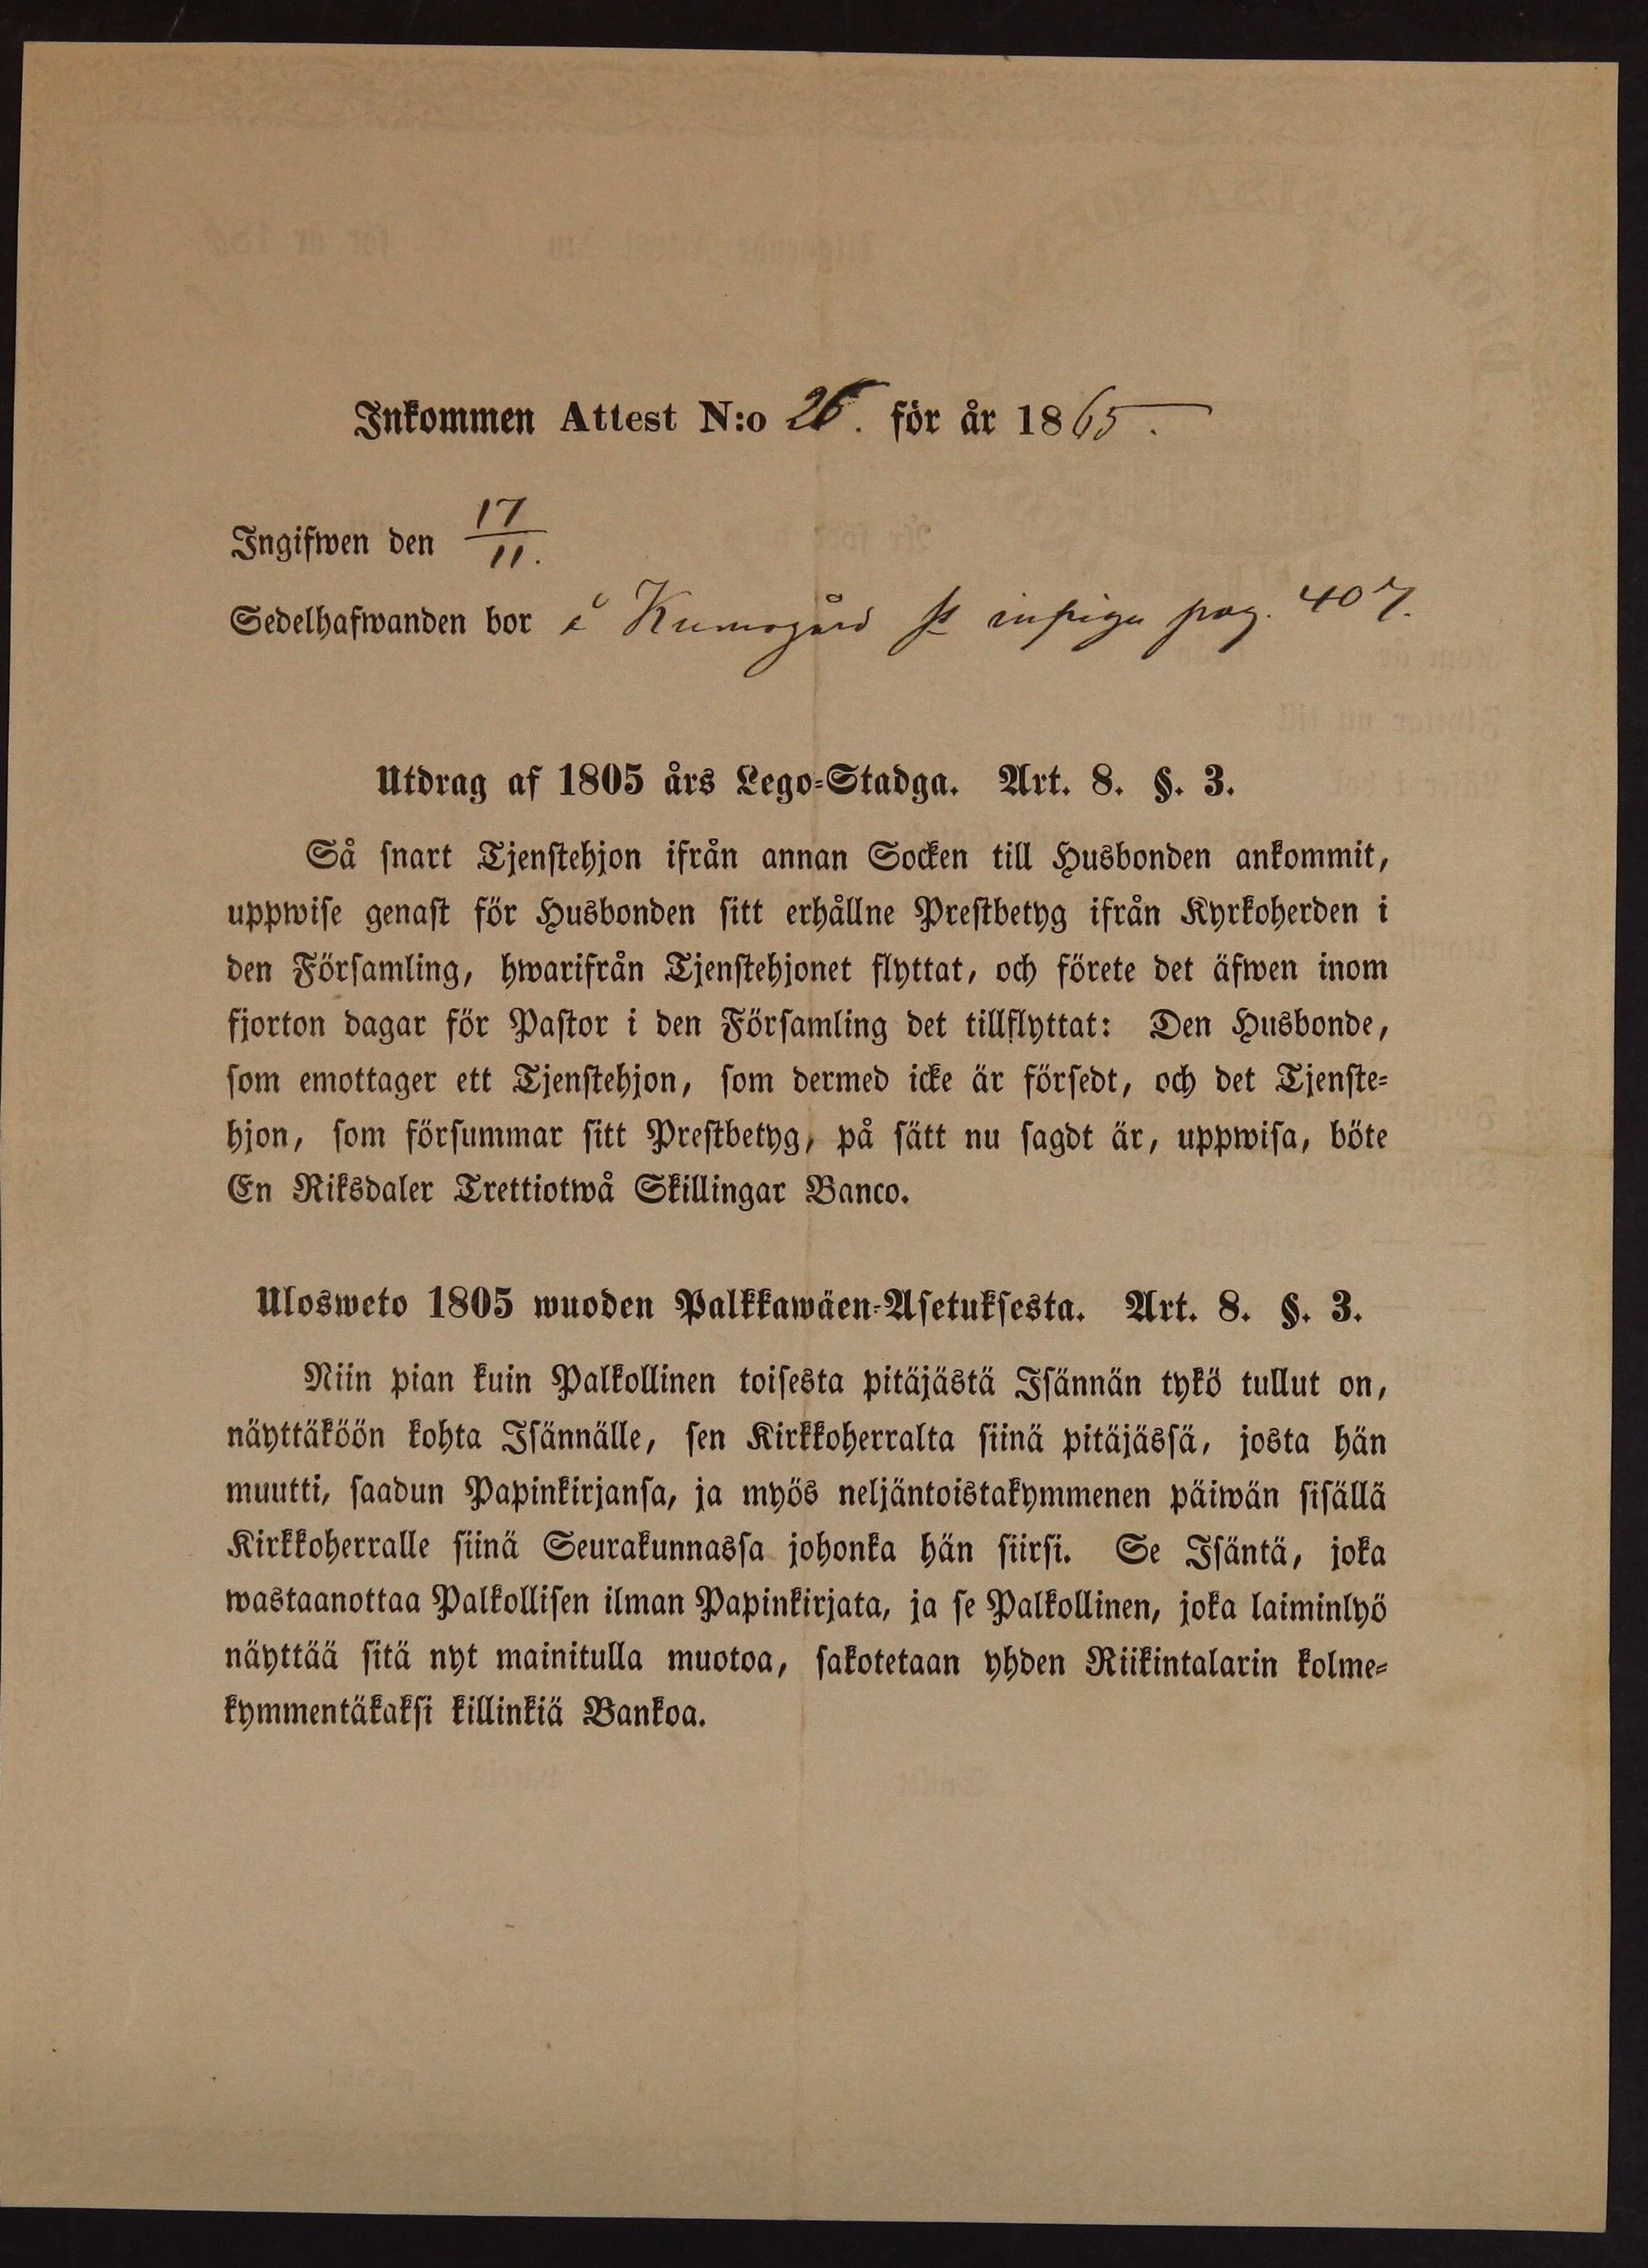 Inkommen Attest N:o 26. för år 1865.
Ingifwen den 17/11.
Sedelhafwanden bor i Kumogård pag. 407.
Utdrag af 1805 års Lego-Stadga. Art. 8. §. 3.
Så snart Tjenstehjon ifrån annan Socken till Husbonden ankommit,
uppwise genast för Husbonden sitt erhållne Prestbetyg ifrån Kyrkoherden i
den Församling, hwarifrån Tjenstehjonet flyttat, och förete det äfwen inom
fjorton dagar för Pastor i den Församling det tillflyttat: Den Husbonde,
som emottager ett Tjenstehjon, som dermed icke är försedt, och det Tjenste-
hjon, som försummar sitt Prestbetyg, på sätt nu sagdt är, uppwisa, böte
En Riksdaler Trettiotwå Skillingar Banco.
Ulosweto 1805 wuoden Palkkawäen-Asetuksesta. Art. 8. §. 3.
Niin pian kuin Palkollinen toisesta pitäjästä Isännän tykö tullut on,
näyttäköön kohta Isännälle, sen Kirkkoherralta siinä pitäjässä, josta hän
muutti, saadun Papinkirjansa, ja myös neljäntoistakymmenen päiwän sisällä
Kirkkoherralle siinä Seurakunnassa johonka hän siirsi. Se Isäntä, joka
wastaanottaa Palkollisen ilman Papinkirjata, ja se Palkollinen, joka laiminlyö
näyttää sitä nyt mainitulla muotoa, sakotetaan yhden Riikintalarin kolme-
kymmentäkaksi killinkiä Bankoa.